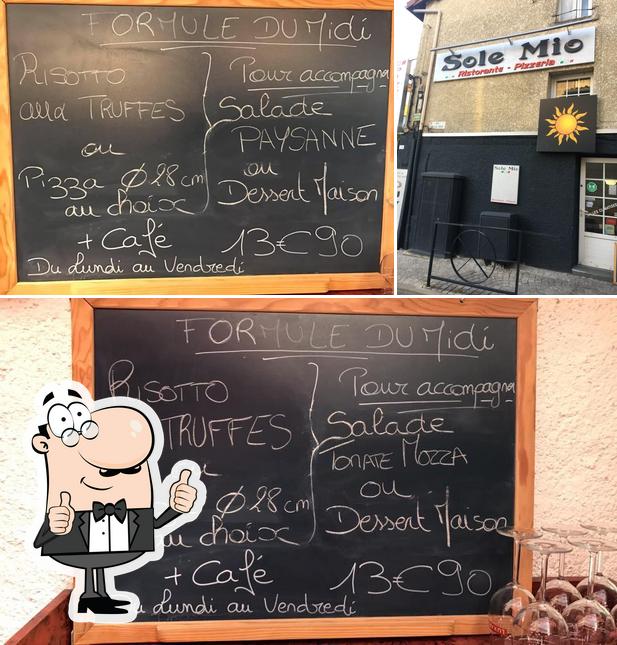 FORMULE DU Midi
RISOTTO
alla TRUFFES
ou
Pizza Ø 28 cm
au choix
Pour accompagner
Salade
PAYSANNE
ou
Dessert Maison
+ Café 13€90
Du Lundi au Vendredi
Sole Mio
Ristorante - Pizzeria
Sole Mio
FORMULE DU Midi
RISOTTO
TRUFFES
Ø 28 cm
au choix
Pour accompagner
Salade
TOMATE MOZZA
ou
Dessert Maison
+ Café 13€90
Lundi au Vendredi